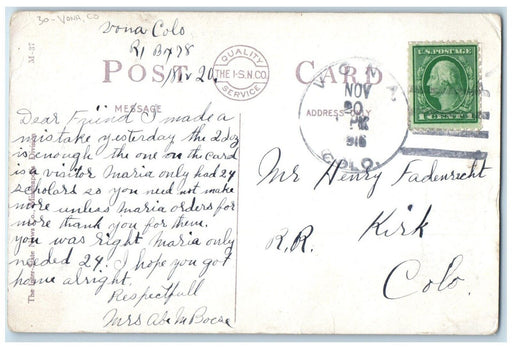 30-VONA, CO
Vona Colo
R1 Bx 78
Nov 20,
M-37
POST CARD
QUALITY
THE I-S.N.CO.
SERVICE
VONA
NOV
20
PM
COLO.
U.S. POSTAGE
1 CENT 1
MESSAGE
ADDRESS
Dear Friind I made a
mistake yesterday the 2 doz
is enough the one on the card
is a visitor Maria only had 24
scholars so you need not make
more unless Maria orders for
more thank you for them.
you was right Maria only
needed 24. I hope you got
home alright.
Respectfull
Mrs Abe M
Mr Henry Fadenrecht
R.R. Kirk
Colo.